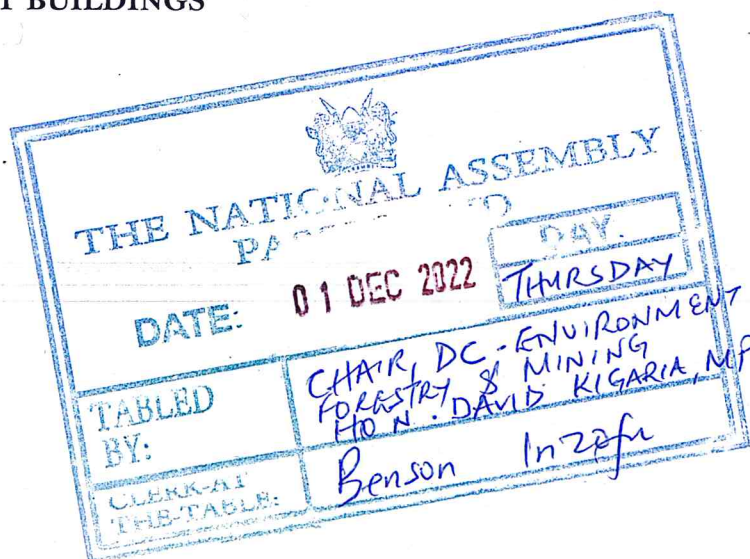 BUILDINGS
THE NATIONAL ASSEMBLY
DATE: 01 DEC 2022
DAY.
THURSDAY
TABLED BY:
CHAIR, DC-ENVIRONMENT
FORESTRY & MINING
HON. DAVID KIGARIA, MP
CLERK-AT THE-TABLE:
Benson